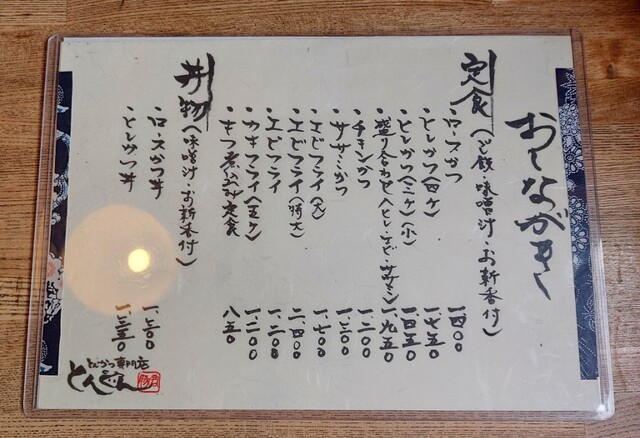 おしながき
定食(ご飯・味噌汁・お新香付)
・ロースかつ 一.四〇〇
・ヒレかつ(四ケ) 一.七五〇
・ヒレかつ(三ケ)(小) 一.四五〇
・盛り合わせ(ヒレ・エビ・ササミ) 一.九五〇
・チキンかつ 一.二〇〇
・ササミかつ 一.三〇〇
・エビフライ(大) 一.七〇〇
・エビフライ(特大) 二.四〇〇
・エビフライ 一.三〇〇
・カキフライ(五ケ) 一.二〇〇
定食 八五〇
丼物(味噌汁・お新香付)
・ロースかつ丼
・ヒレかつ丼 一.三五〇
とんかつ専門店